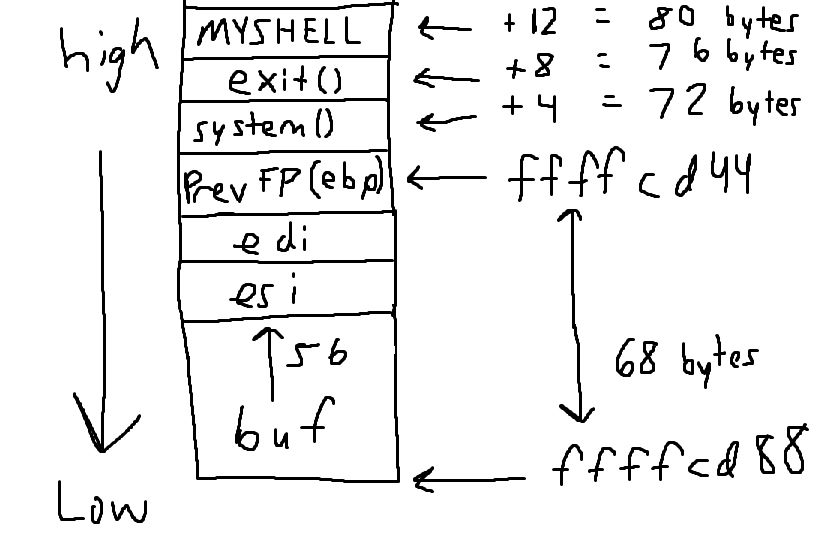 high
MYSHELL ← +12 = 80 bytes
exit() ← +8 = 76 bytes
system() ← +4 = 72 bytes
Prev FP(ebp) ← ffffcd44
edi
esi
56
68 bytes
buf
ffffcd88
Low